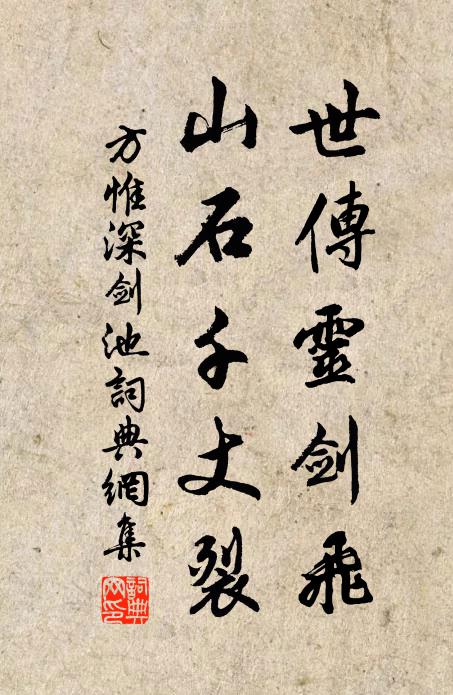 世傳靈劍飛
山石千丈裂
方惟深劍池詞典網集
詞典網印